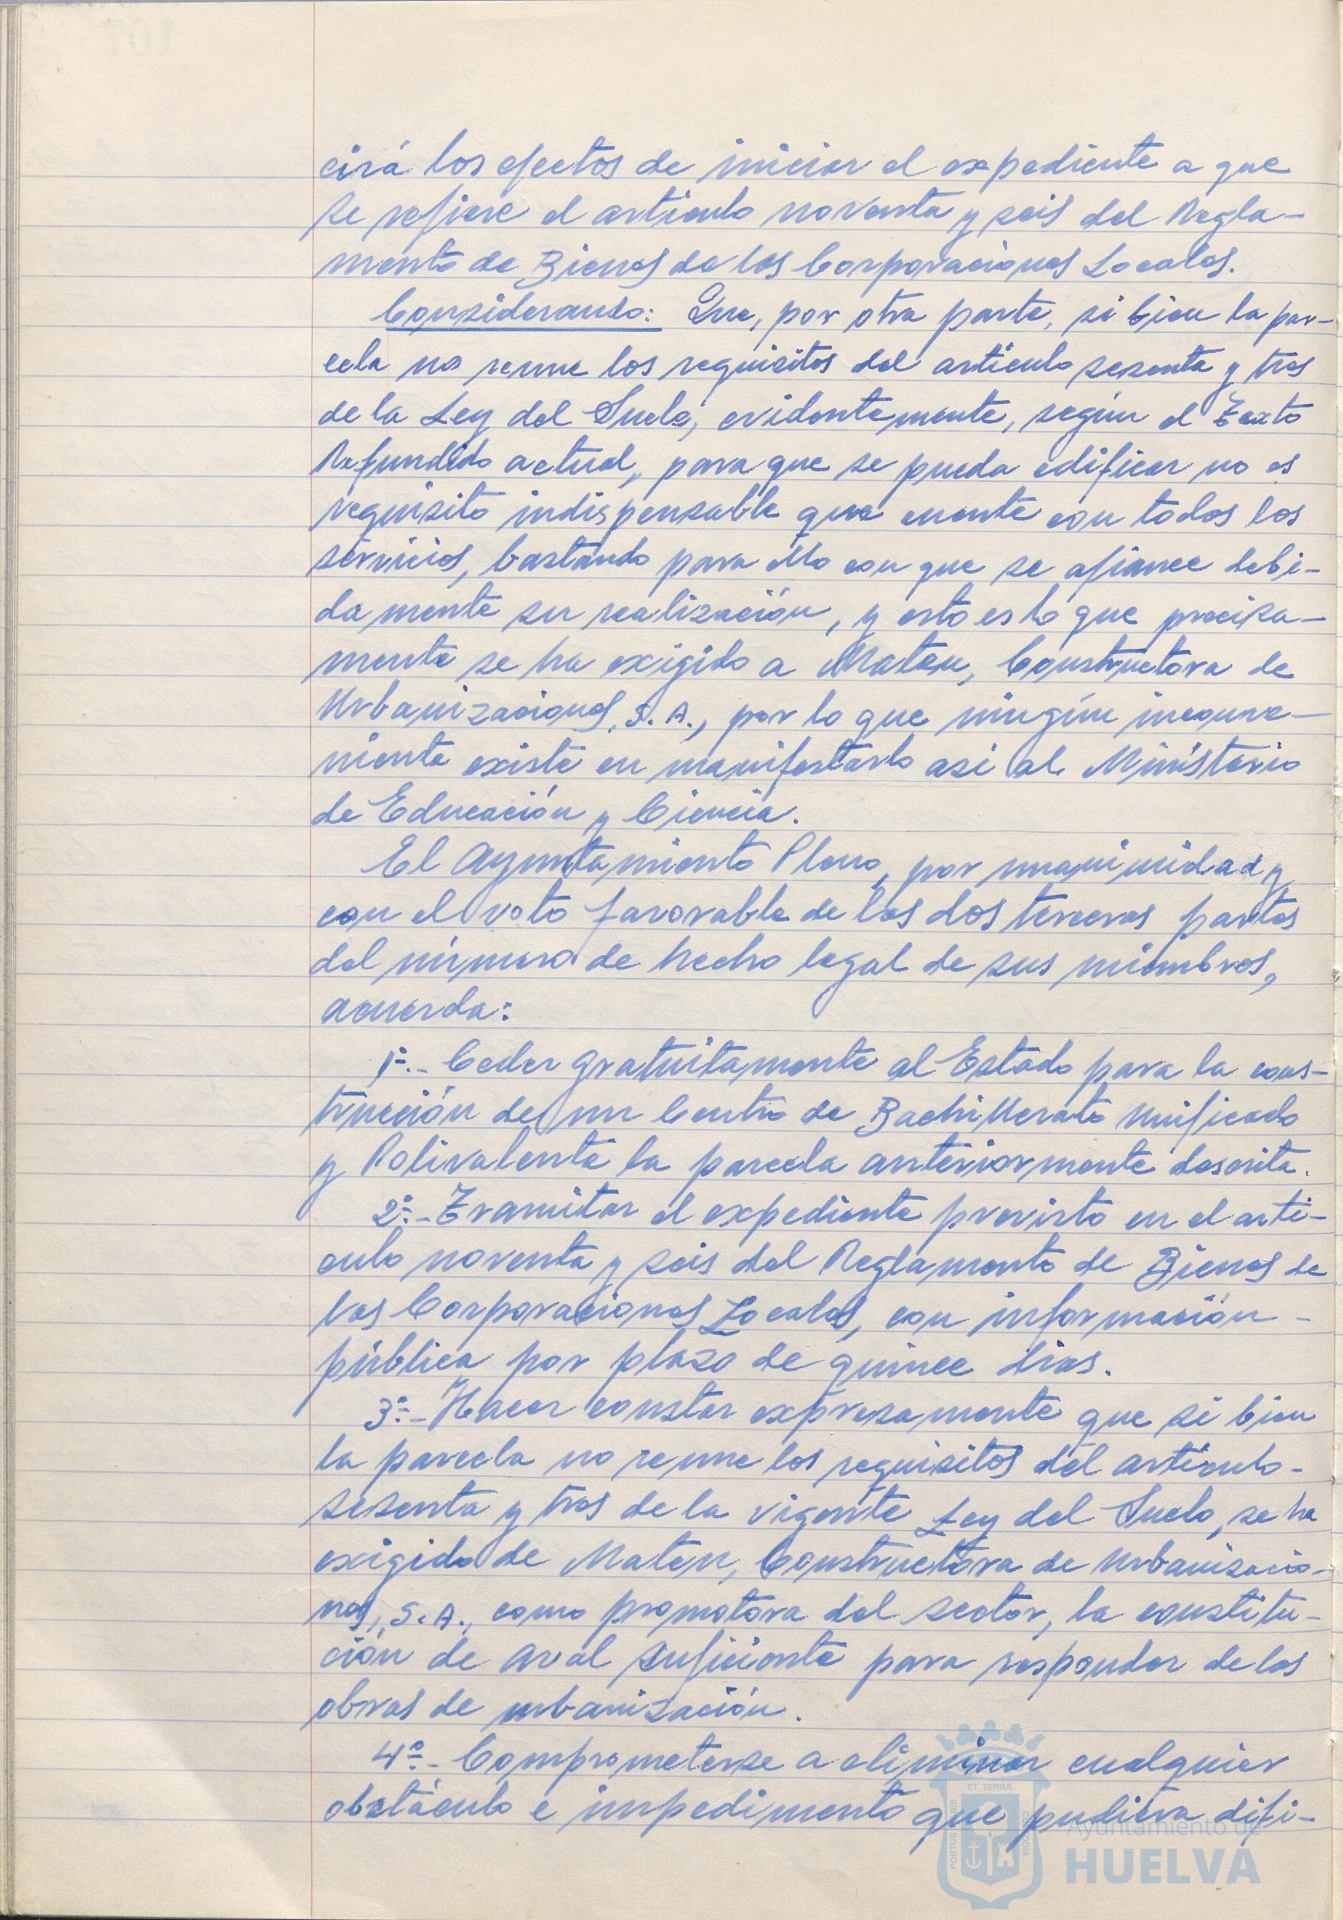 cirá los efectos de iniciar el expediente a que
se refiere el artículo noventa y seis del Regla-
mento de Bienes de las Corporaciones Locales.
Considerando: Que, por otra parte, si bien la par-
cela no reune los requisitos del artículo sesenta y tres
de la Ley del Suelo, evidentemente, según el Texto
Refundido actual, para que se pueda edificar no es
requisito indispensable que cuente con todos los
servicios, bastando para ello con que se afiance debi-
damente su realización, y esto es lo que precisa-
mente se ha exigido a Maten, Constructora de
Urbanizaciones, S.A., por lo que ningún inconve-
niente existe en manifestarlo así al Ministerio
de Educación y Ciencia.
El Ayuntamiento Pleno, por unanimidad y
con el voto favorable de las dos terceras partes
del número de hecho legal de sus miembros,
acuerda:
1º.- Ceder gratuitamente al Estado para la cons-
trucción de un Centro de Bachillerato Unificado
y Polivalente la parcela anteriormente descrita.
2º.- Tramitar el expediente previsto en el artí-
culo noventa y seis del Reglamento de Bienes de
las Corporaciones Locales, con información -
pública por plazo de quince dias.
3º.- Hacer constar expresamente que si bien
la parcela no reune los requisitos del artículo-
sesenta y tres de la vigente Ley del Suelo, se ha
exigido de Maten, Constructora de Urbanizacio-
nes, S.A., como promotora del sector, la constitu-
ción de aval suficiente para responder de las
obras de urbanización.
4º.- Comprometerse a eliminar cualquier
obstáculo e impedimento que pudiera difi-
ET TERRÆ
PORTUS MARIS
CUSTODIA
Ayuntamiento de
HUELVA